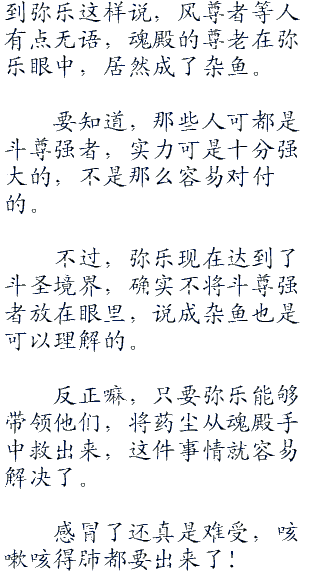 到弥乐这样说，风尊者等人
有点无语，魂殿的尊老在弥
乐眼中，居然成了杂鱼。
要知道，那些人可都是
斗尊强者，实力可是十分强
大的，不是那么容易对付
的。
不过，弥乐现在达到了
斗圣境界，确实不将斗尊强
者放在眼里，说成杂鱼也是
可以理解的。
反正嘛，只要弥乐能够
带领他们，将药尘从魂殿手
中救出来，这件事情就容易
解决了。
感冒了还真是难受，咳
嗽咳得肺都要出来了！